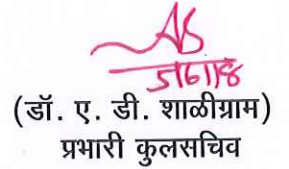 5/6/18
(डॉ. ए. डी. शाळीग्राम)
प्रभारी कुलसचिव